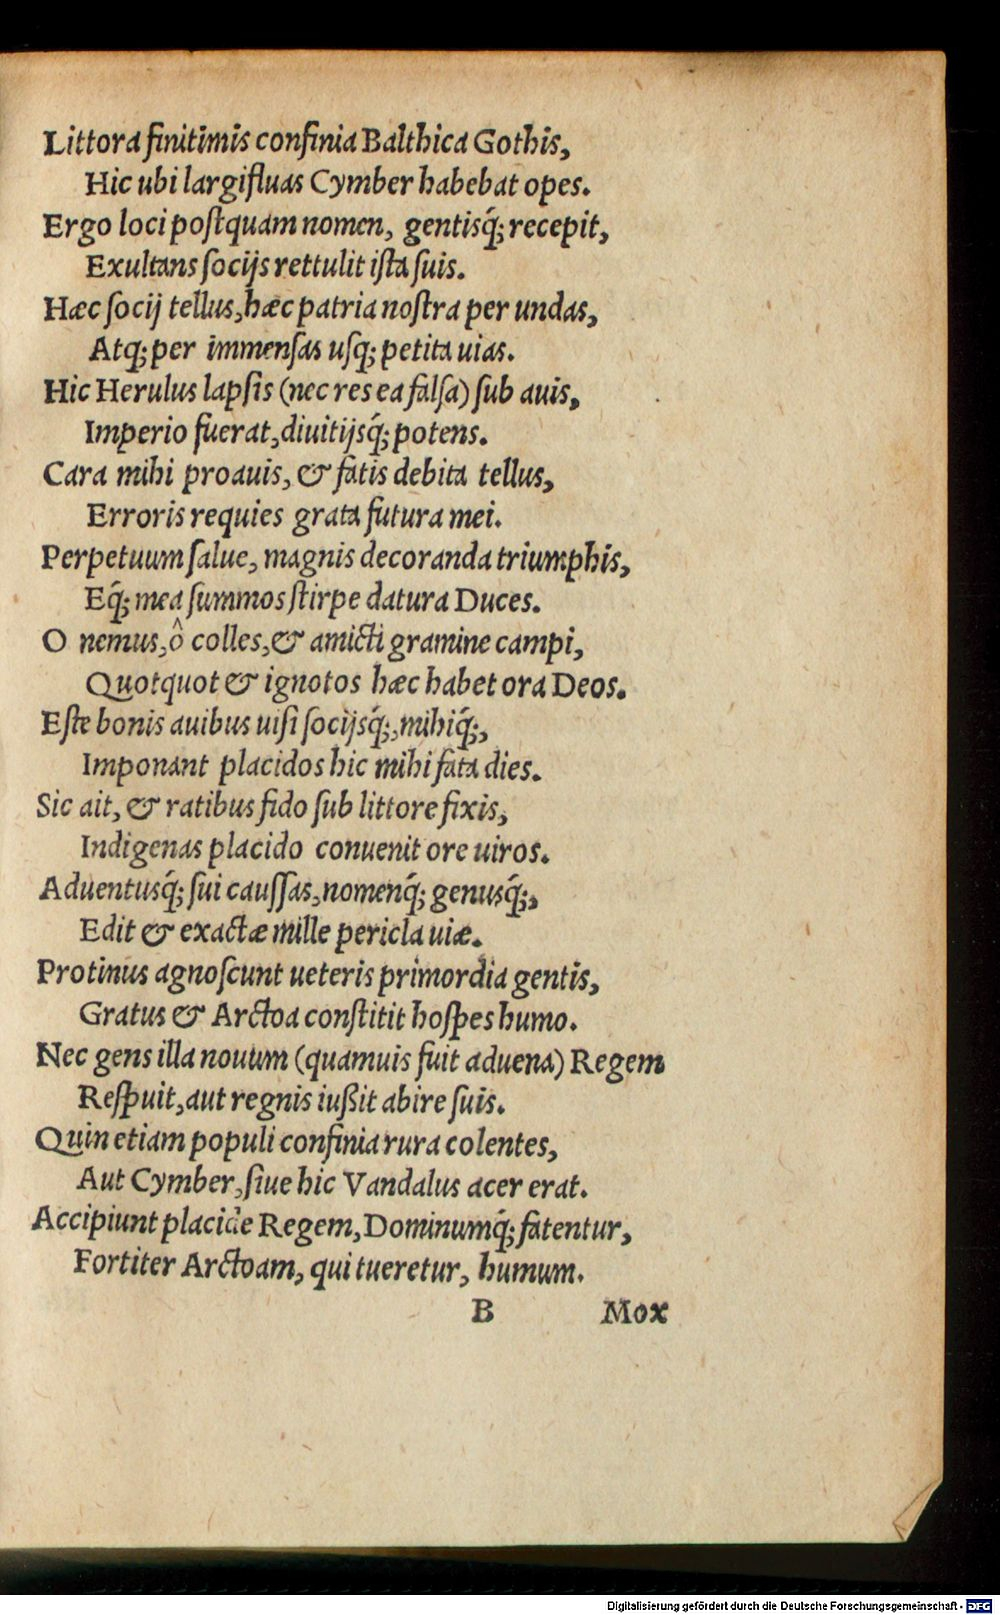 Littora finitimis confinia Balthica Gothis,
Hic ubi largifluas Cymber habebat opes.
Ergo loci poſtquam nomen, gentisq́; recepit,
Exultans ſocijs rettulit iſta ſuis.
Hæc ſocij tellus, hæc patria noſtra per undas,
Atq; per immenſas uſq; petita uias.
Hic Herulus lapſis (nec res ea falſa) ſub auis,
Imperio fuerat, diuitijsq́; potens.
Cara mihi proauis, & fatis debita tellus,
Erroris requies grata futura mei.
Perpetuum ſalue, magnis decoranda triumphis,
Eq́; mea ſummos ſtirpe datura Duces.
O nemus, ô colles, & amicti gramine campi,
Quotquot & ignotos hæc habet ora Deos.
Eſte bonis auibus uiſi ſocijsq́;, mihiq́;,
Imponant placidos hic mihi fata dies.
Sic ait, & ratibus fido ſub littore fixis,
Indigenas placido conuenit ore uiros.
Aduentusq́; ſui cauſſas, nomenq́; genusq́;,
Edit & exactæ mille pericla uiæ.
Protinus agnoſcunt ueteris primordia gentis,
Gratus & Arctoa conſtitit hoſpes humo.
Nec gens illa nouum (quamuis fuit aduena) Regem
Reſpuit, aut regnis iußit abire ſuis.
Quin etiam populi confinia rura colentes,
Aut Cymber, ſiue hic Vandalus acer erat.
Accipiunt placide Regem, Dominumq́; fatentur,
Fortiter Arctoam, qui tueretur, humum.
B Mox
Digitalisierung gefördert durch die Deutsche Forschungsgemeinschaft - DFG